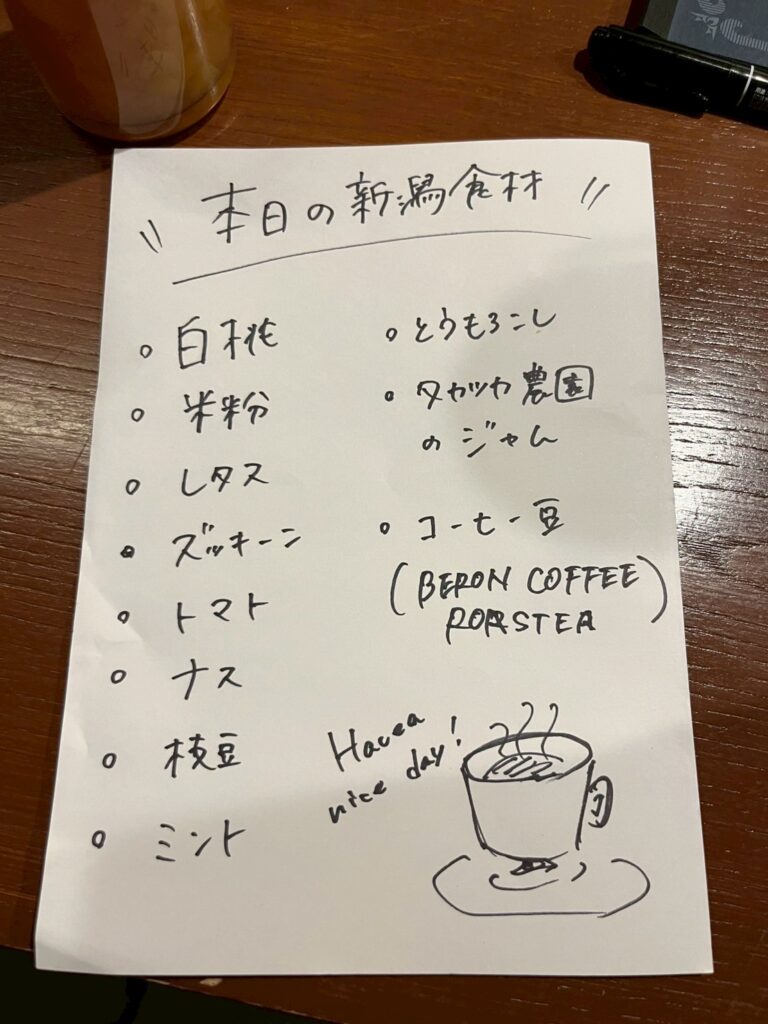 本日の新潟食材
白桃
米粉
レタス
ズッキーニ
トマト
ナス
枝豆
ミント
とうもろこし
タカツカ農園
のジャム
コーヒー豆
(BERON COFFEE
ROASTER)
Have a
nice day!